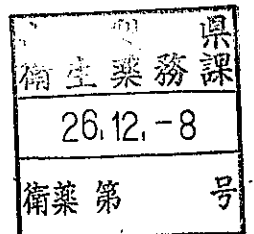 県
衛生薬務課
26.12.-8
衛薬第 号